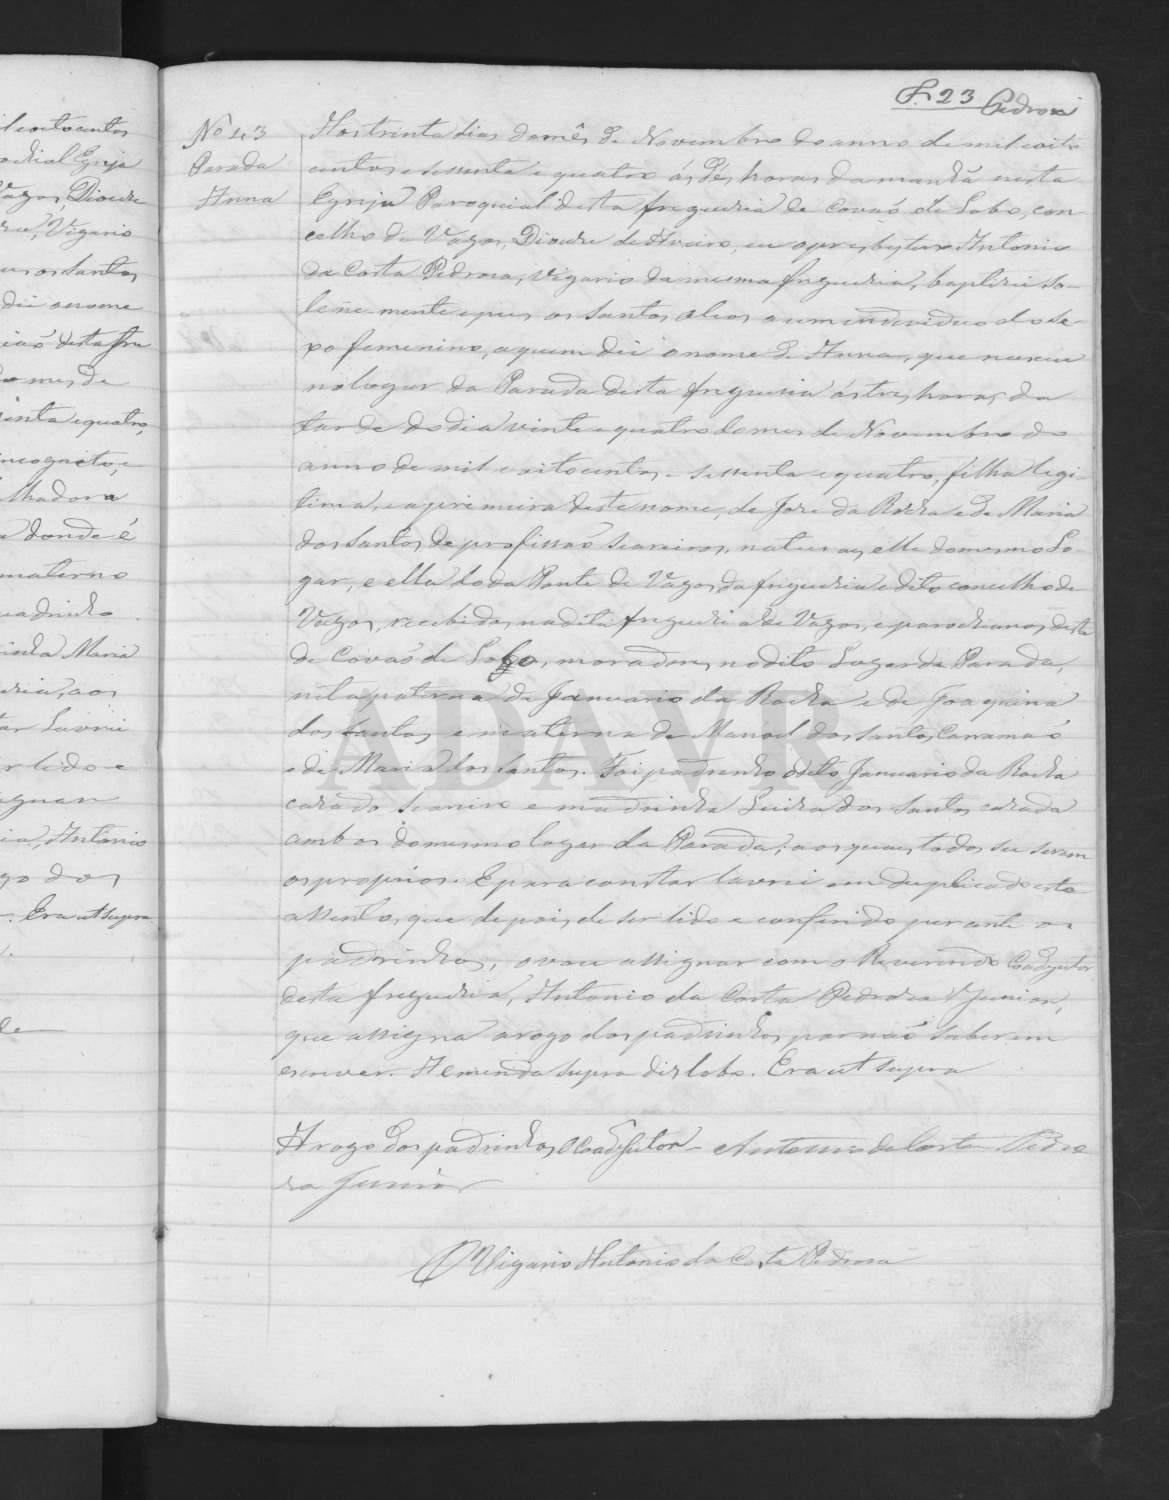 F. 23 Pedroza
il oitocentos
ochial Egreja
Vagos, Diocese
Vigario
os santos
dei o nome
desta fre
do mes de
enta e quatro,
incognito, e
lhadora
donde é
materno
padrinho
inha Maria
ar Lavrei
r lido e
ia, Antonio
go dos
. Era ut supra
Nº 43
Parada
Anna
Aos trinta dias do mês de Novembro do anno de mil oito
centos e sessenta e quatro ás dés horas da manhã nesta
Egreja Paroquial desta freguezia de Covaõ de Lobo, con
celho de Vagos, Diocese de Aveiro, eu o presbytero Antonio
da Costa Pedroza, Vigario da mesma freguezia, baptizei so-
lene-mente e pus os santos oleos a um individuo do se-
xo femenino, a quem dei o nome de Anna, que nasceu
no logar da Parada desta freguezia ás tres horas da
tarde do dia vinte e quatro do mes de Novembro do
anno de mil e oitocentos e sessenta e quatro, filha legi-
tima, e a primeira deste nome, de Joze da Rocha e de Maria
dos Santos de profissaõ seareiros, naturaes, elle do mesmo Lo-
gar, e ella do da Ponte de Vagos, da freguezia e dito concelho de
Vagos, recebidos na dita freguezia de Vagos, e parochianos desta
de Covaõ de Lobo, moradores no dito Lugar da Parada,
neta paterna de Januario da Rocha e de Joaquina
dos Santos e materna de Manoel dos Santos Carramaõ
e de Maria dos Santos. Foi padrinho o dito Januario da Rocha
cazado seareiro e madrinha Luiza dos Santos cazada
ambos do mesmo logar da Parada, aos quaes todos sei serem
os proprios. E para constar lavrei em duplicado este
assento, que depois de ser lido e conferido perante os
padrinhos, o vou assignar com o Reverendo Coadjutor
desta freguezia, Antonio da Costa Pedroza Junior,
que assigna a rogo dos padrinhos por naõ saberem
escrever. A emenda supra diz lobo. Era ut supra
A rogo dos padrinhos, O Coadjutor - Antonio da Costa Pedro
za Junior
O Vigario Antonio da Costa Pedroza
ADAVR